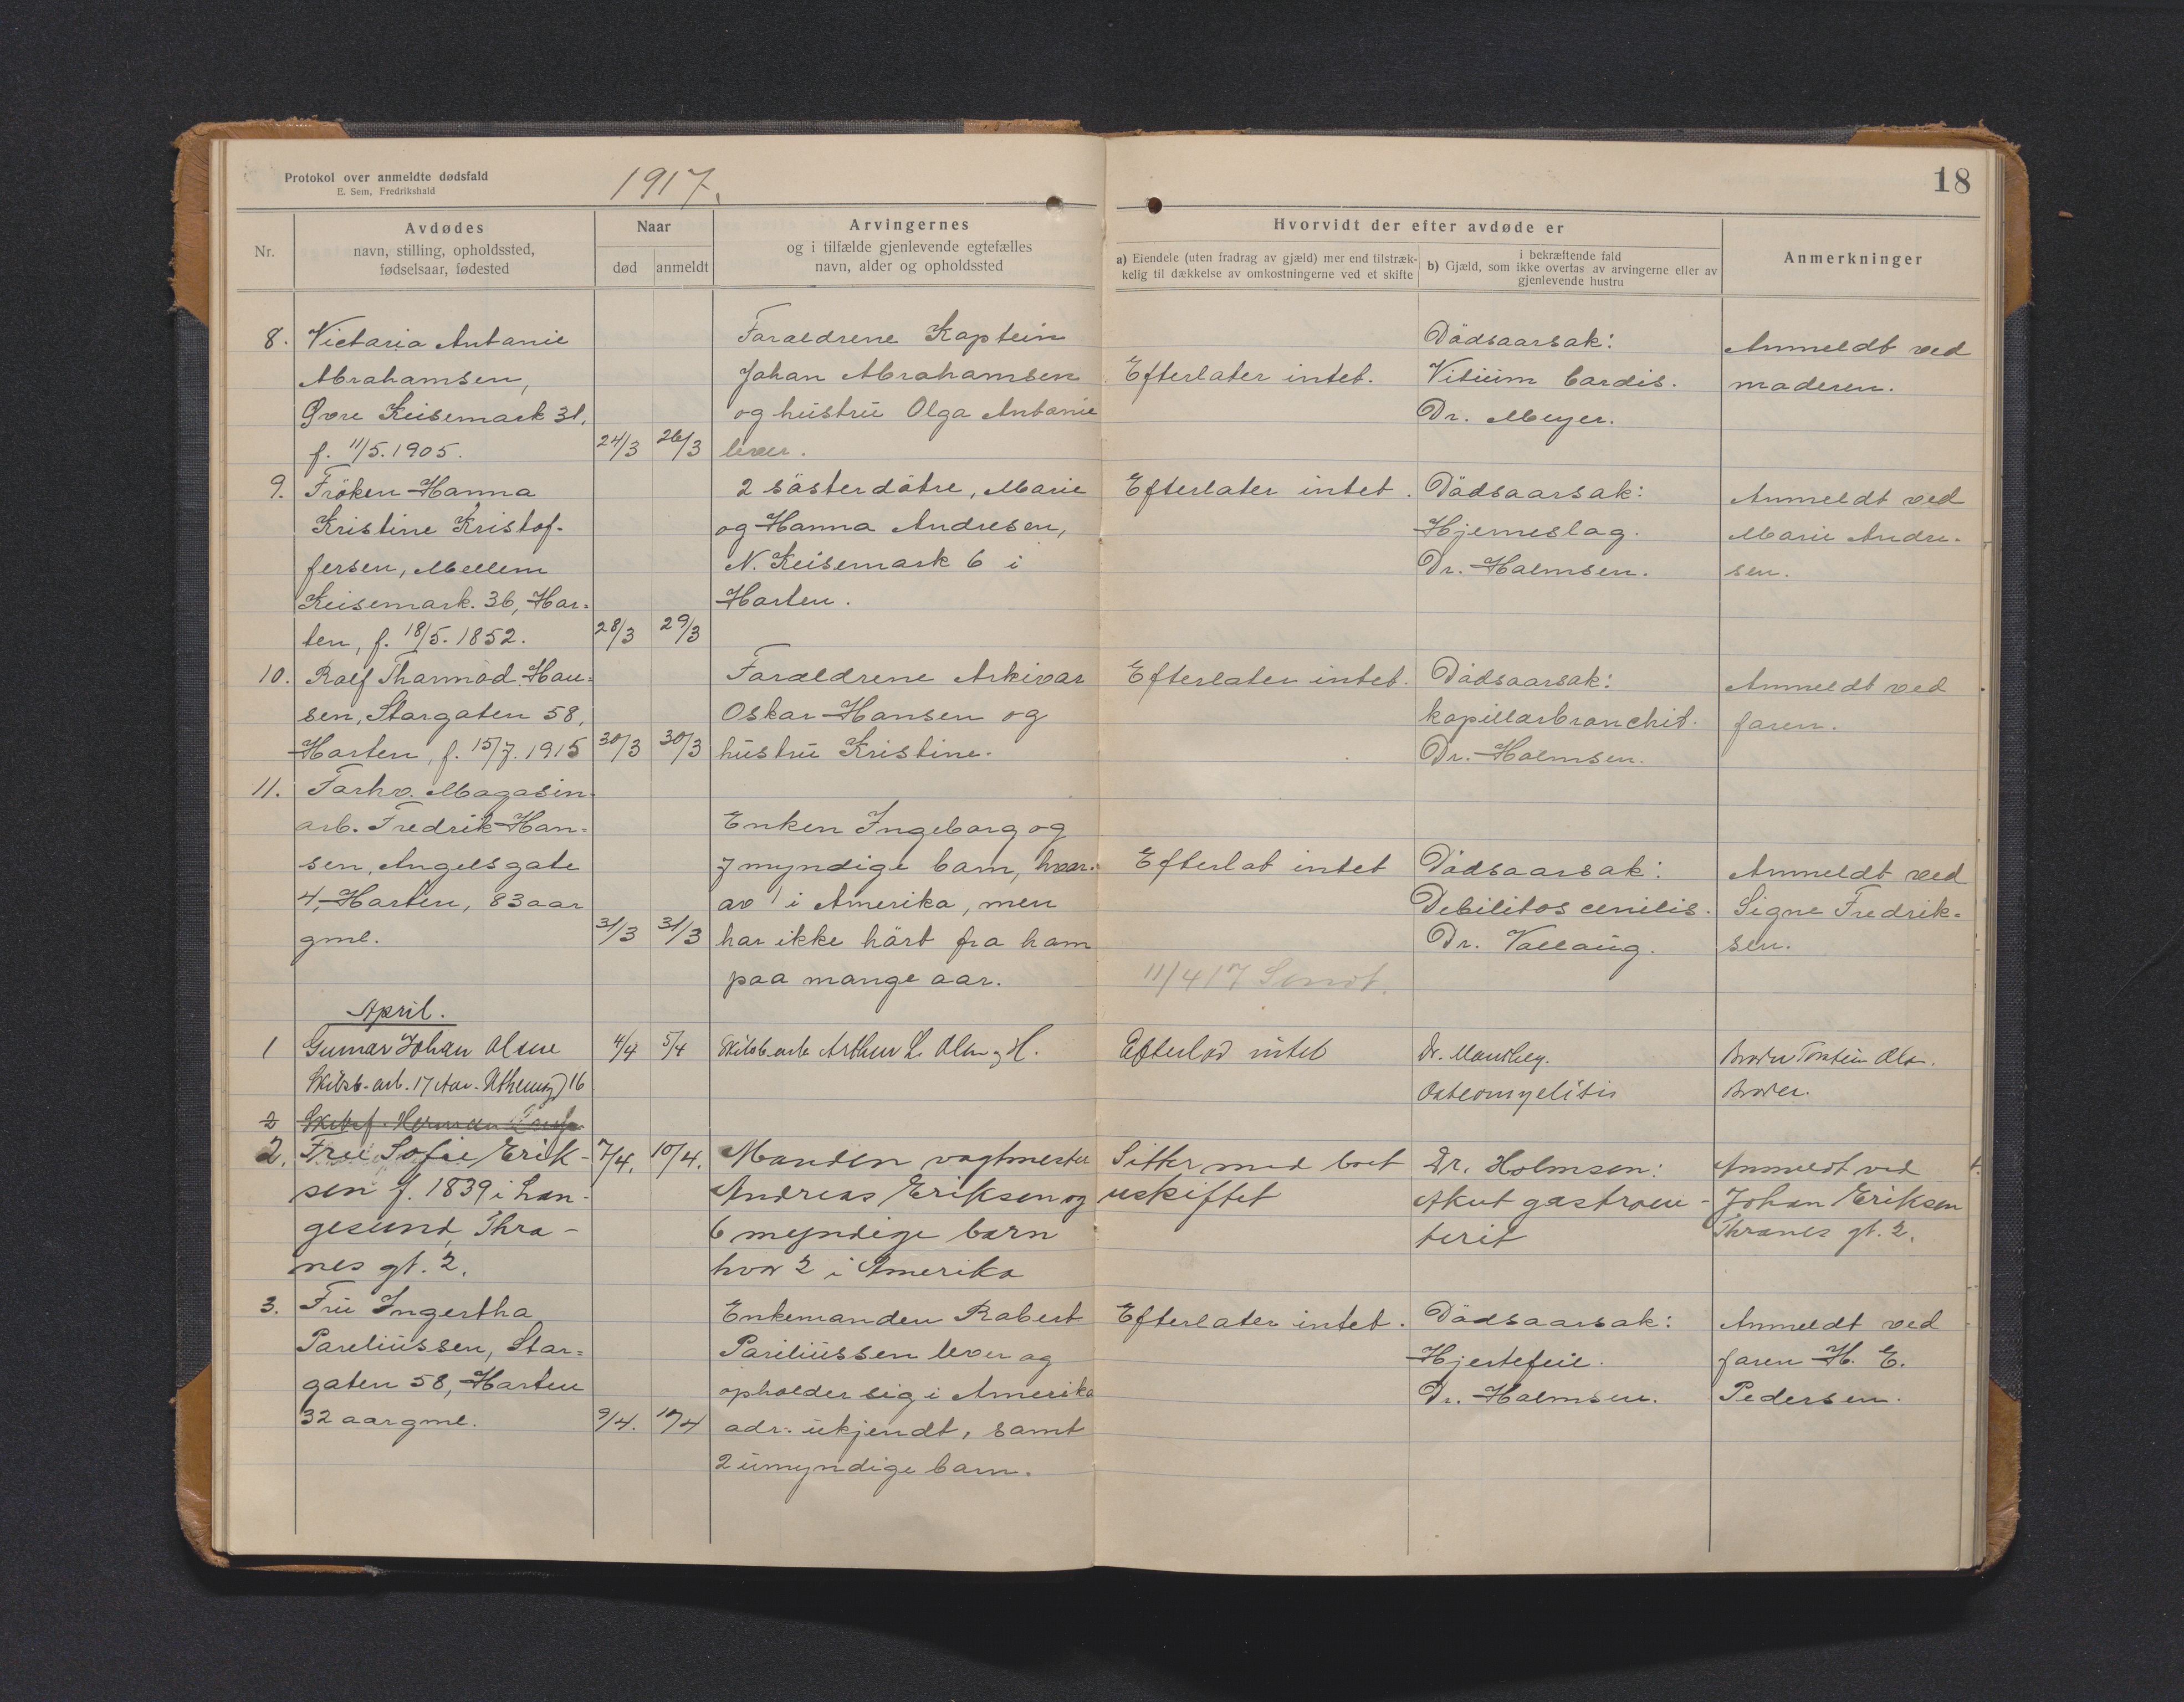 Protokol over anmeldte dødsfald
E. Sem, Fredrikshald
1917.
18
Nr.
Avdødes
navn, stilling, opholdssted,
fødselsaar, fødested
Naar
død
anmeldt
Arvingernes
og i tilfælde gjenlevende egtefælles
navn, alder og opholdssted
Hvorvidt der efter avdøde er
a) Eiendele (uten fradrag av gjæld) mer end tilstræk-
kelig til dækkelse av omkostningerne ved et skifte
i bekræftende fald
b) Gjæld, som ikke overtas av arvingerne eller av
gjenlevende hustru
Anmerkninger
8. Victoria Antonie
Abrahamsen,
Øvre Keisemark 31,
f. 11/5. 1905.
24/3 26/3
Forældrene Kaptein
Johan Abrahamsen
og hustru Olga Antonie
lever.
Efterlater intet.
Dödsaarsak:
Vitium Cordis.
Dr. Meyer.
Anmeldt ved
moderen.
9. Fröken Hanna
Kristine Kristof-
fersen, Mellem
Keisemark. 36, Hor=
ten, f. 18/5. 1852.
28/3 29/3
2 sösterdötre, Marie
og Hanna Andresen,
N. Keisemark 6 i
Horten.
Efterlater intet.
Dödsaarsak:
Hjerneslag.
Dr. Holmsen.
Anmeldt ved
Marie Andre-
sen.
10. Rolf Thormod Han-
sen, Storgaten 58,
Horten, f. 15/7. 1915
30/3 30/3
Forældrene Arkivar
Oskar Hansen og
hustru Kristine.
Efterlater intet.
Dödsaarsak:
kapillarbronchit.
Dr. Holmsen.
Anmeldt ved
faren.
11. Forhv. Magasin
arb. Fredrik Han=
sen, Angelsgate
4, Horten, 83 aar
gml.
31/3 31/3
Enken Ingeborg og
7 myndige barn, hvor-
av 1 i Amerika, men
har ikke hört fra ham
paa mange aar.
Efterlot intet
11/4 17 Sendt.
Dödsaarsak:
Debilitas cenilis.
Dr. Vollaug.
Anmeldt ved
Signe Fredrik-
sen.
April.
1 Gunnar Johan Olsen
Skibsb. arb. 17 Aar. 16
4/4 5/4
Skibsb. arb. Arthur L. Olsen, H.
Efterlod intet
Dr.
Osteomyelitis
Broder.
2
2. Fru Sofie Erik-
sen f. 1839 i Lan-
gesund, Thra-
nes gt. 2.
7/4. 10/4.
Manden vagtmester
Andreas Eriksen og
6 myndige barn
hvor 2 i Amerika
Sitter med boet
uskiftet
Dr. Holmsen:
Akut gastroen-
terit
Anmeldt ved
Johan Eriksen
Thranes gt. 2.
3. Fru Ingertha
Pareliussen, Stor=
gaten 58, Horten
32 aar gml.
9/4. 10/4
Enkemanden Robert
Pariliussen lever og
opholder sig i Amerika
adr. ukjendt, samt
2 umyndige barn.
Efterlater intet.
Dödsaarsak:
Hjertefeil.
Dr. Holmsen.
Anmeldt ved
faren H. E.
Pedersen.